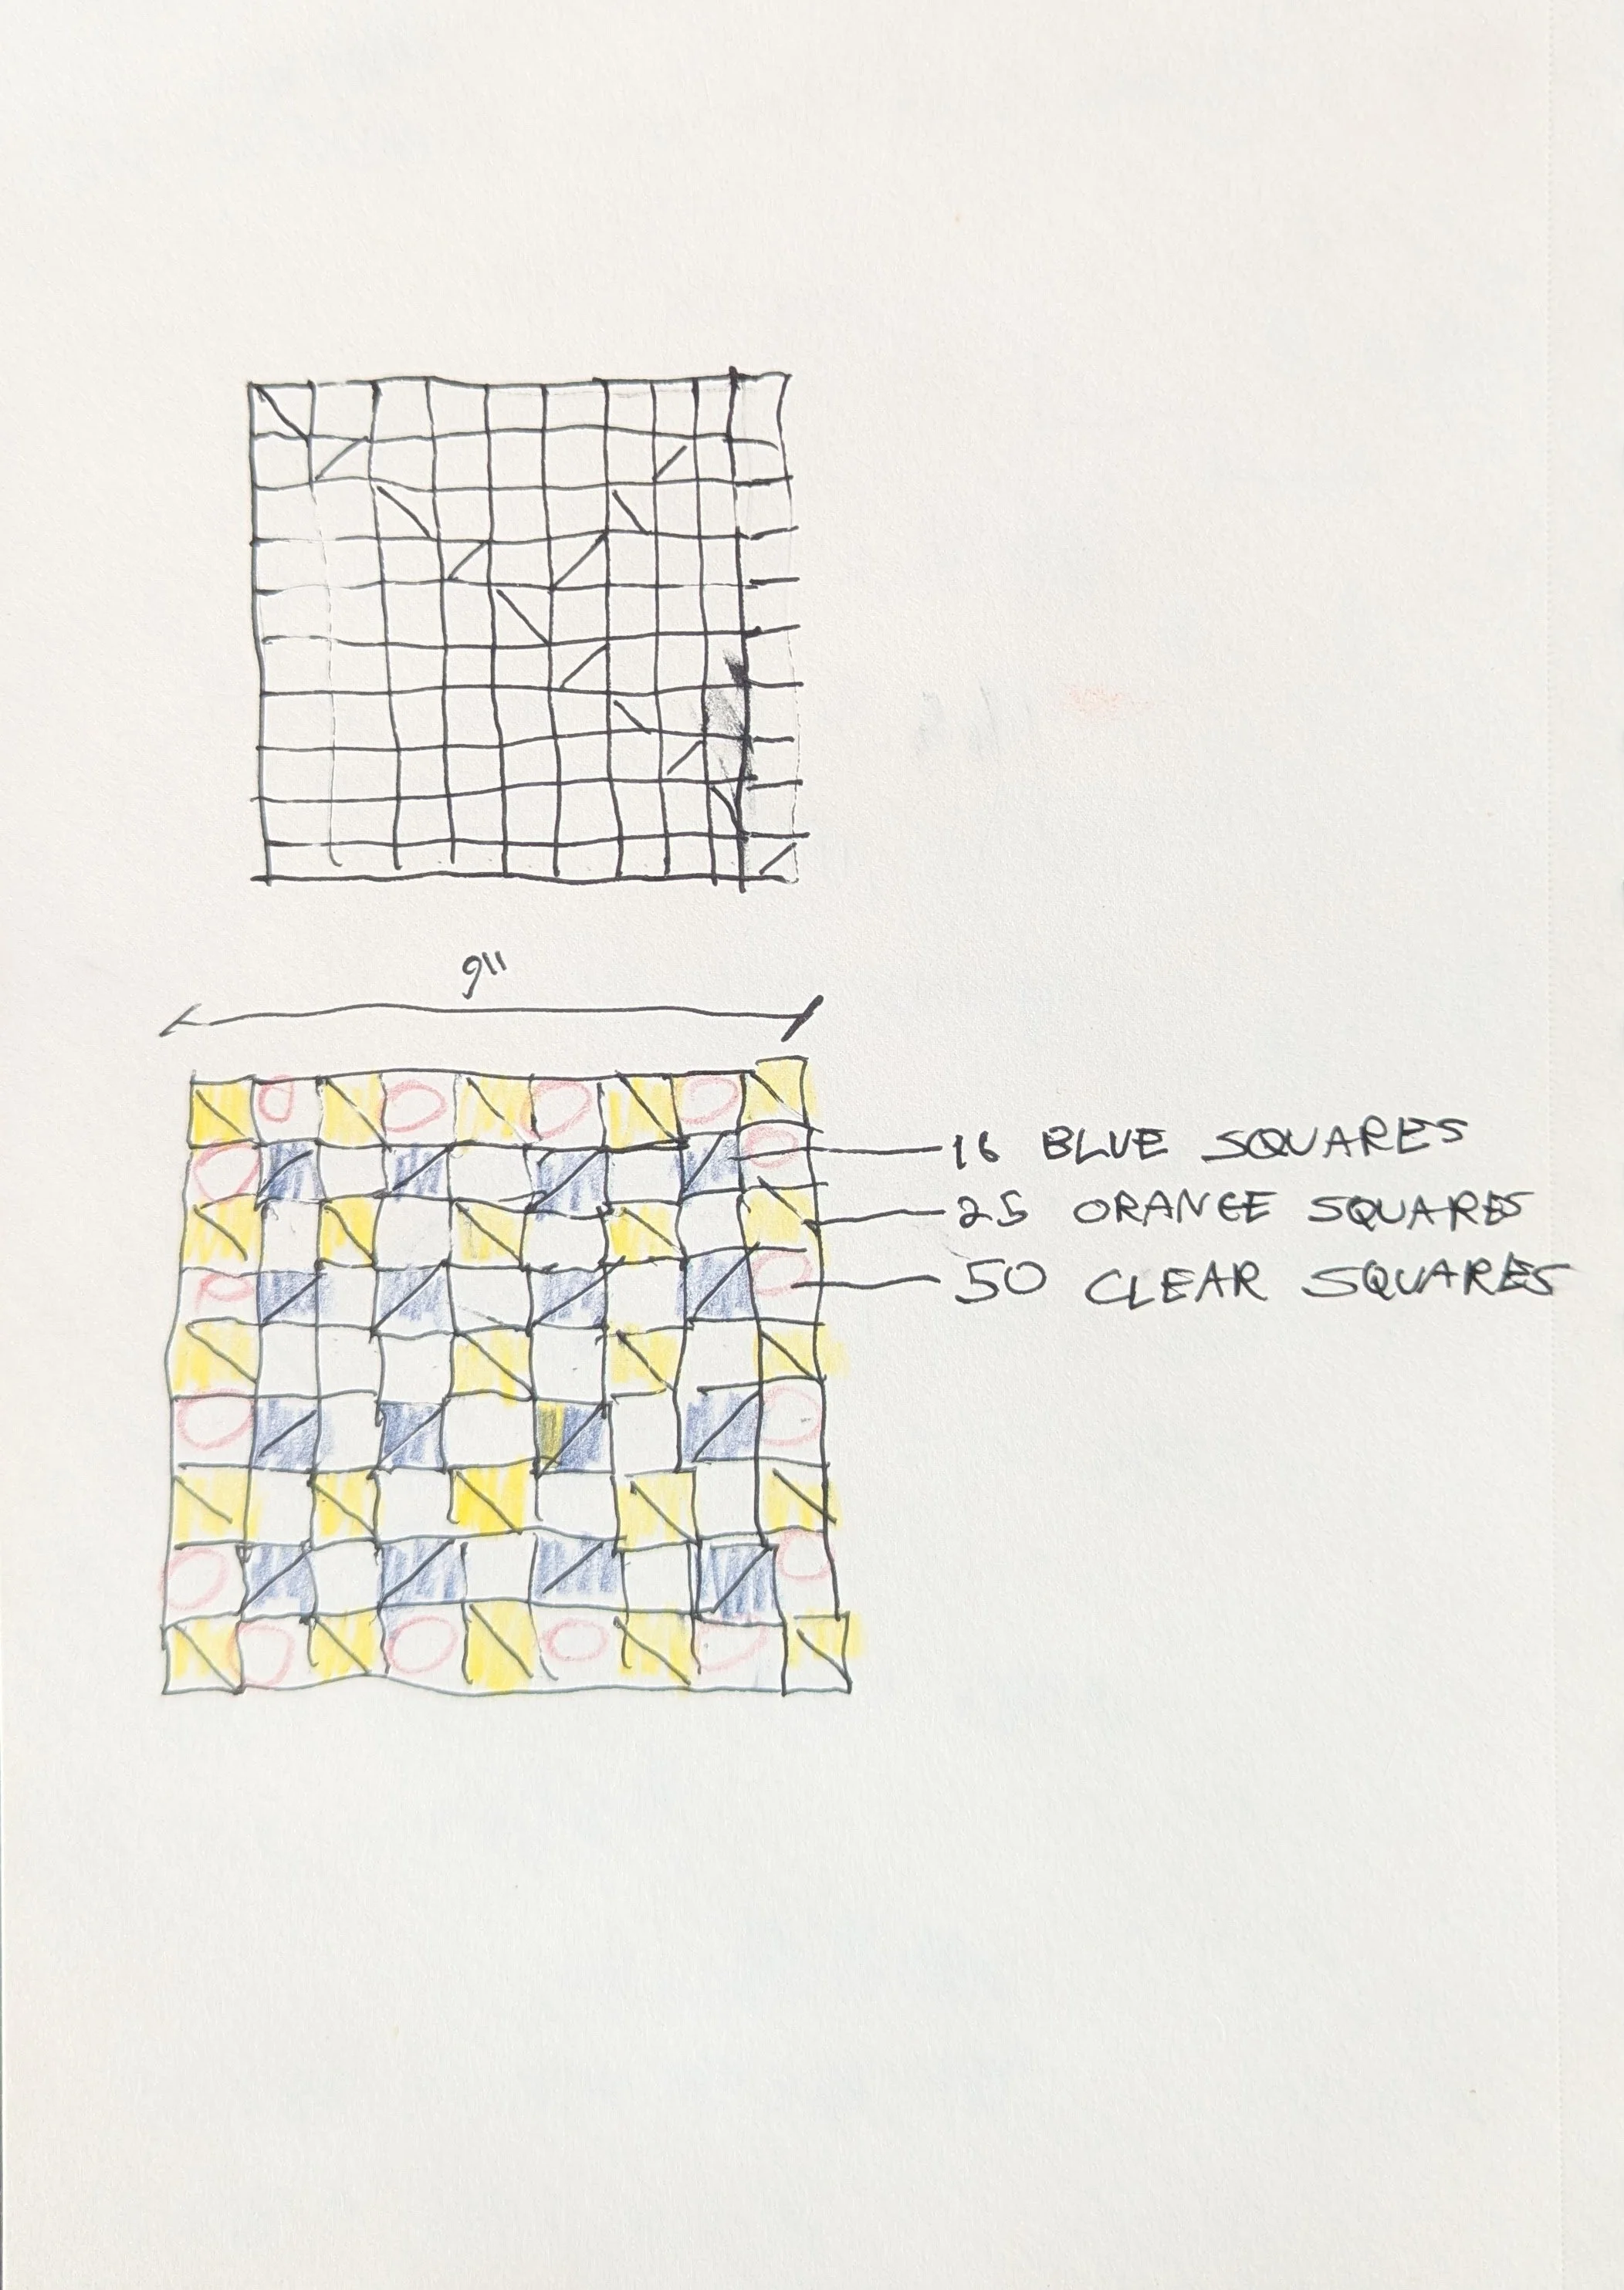 9"
16 BLUE SQUARES
25 ORANGE SQUARES
50 CLEAR SQUARES